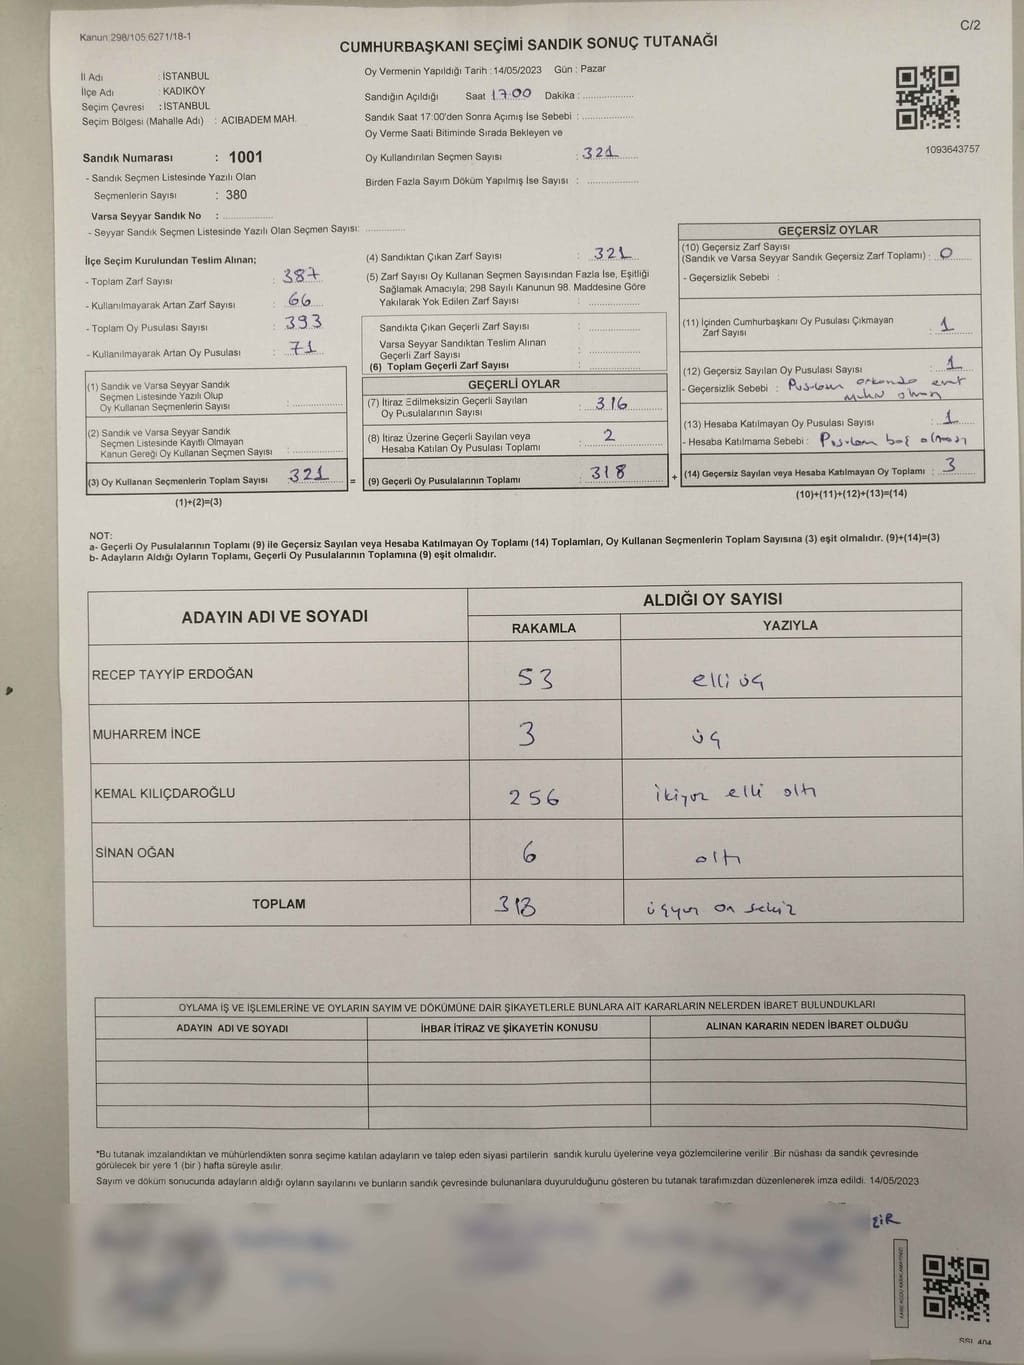 Kanun:298/105;6271/18-1
C/2
CUMHURBAŞKANI SEÇİMİ SANDIK SONUÇ TUTANAĞI
İl Adı : İSTANBUL
İlçe Adı : KADIKÖY
Seçim Çevresi : İSTANBUL
Seçim Bölgesi (Mahalle Adı) : ACIBADEM MAH.
Sandık Numarası : 1001
- Sandık Seçmen Listesinde Yazılı Olan
Seçmenlerin Sayısı : 380
Varsa Seyyar Sandık No : ..................
- Seyyar Sandık Seçmen Listesinde Yazılı Olan Seçmen Sayısı: ..............
Oy Vermenin Yapıldığı Tarih : 14/05/2023 Gün : Pazar
Sandığın Açıldığı Saat 17.00 Dakika : ..................
Sandık Saat 17:00'den Sonra Açımış İse Sebebi : ..................
Oy Verme Saati Bitiminde Sırada Bekleyen ve
Oy Kullandırılan Seçmen Sayısı : 321
Birden Fazla Sayım Döküm Yapılmış İse Sayısı : ..................
1093643757
İlçe Seçim Kurulundan Teslim Alınan;
- Toplam Zarf Sayısı : 387
- Kullanılmayarak Artan Zarf Sayısı : 66
- Toplam Oy Pusulası Sayısı : 393
- Kullanılmayarak Artan Oy Pusulası : 71
(1) Sandık ve Varsa Seyyar Sandık
Seçmen Listesinde Yazılı Olup
Oy Kullanan Seçmenlerin Sayısı : ..................
(2) Sandık ve Varsa Seyyar Sandık
Seçmen Listesinde Kayıtlı Olmayan
Kanun Gereği Oy Kullanan Seçmen Sayısı : ..................
(3) Oy Kullanan Seçmenlerin Toplam Sayısı 321 =
(1)+(2)=(3)
(4) Sandıktan Çıkan Zarf Sayısı : 321
(5) Zarf Sayısı Oy Kullanan Seçmen Sayısından Fazla İse, Eşitliği
Sağlamak Amacıyla; 298 Sayılı Kanunun 98. Maddesine Göre
Yakılarak Yok Edilen Zarf Sayısı : ..................
Sandıkta Çıkan Geçerli Zarf Sayısı : ..................
Varsa Seyyar Sandıktan Teslim Alınan
Geçerli Zarf Sayısı : ..................
(6) Toplam Geçerli Zarf Sayısı : ..................
GEÇERLİ OYLAR
(7) İtiraz Edilmeksizin Geçerli Sayılan
Oy Pusulalarının Sayısı : 316
(8) İtiraz Üzerine Geçerli Sayılan veya
Hesaba Katılan Oy Pusulası Toplamı : 2
(9) Geçerli Oy Pusulalarının Toplamı : 318 +
GEÇERSİZ OYLAR
(10) Geçersiz Zarf Sayısı
(Sandık ve Varsa Seyyar Sandık Geçersiz Zarf Toplamı) : 0
- Geçersizlik Sebebi :
(11) İçinden Cumhurbaşkanı Oy Pusulası Çıkmayan
Zarf Sayısı : 1
(12) Geçersiz Sayılan Oy Pusulası Sayısı : 1
- Geçersizlik Sebebi : Pusulanın arkasında evet
(13) Hesaba Katılmayan Oy Pusulası Sayısı : 1
- Hesaba Katılmama Sebebi : Pusulanın boş olması
(14) Geçersiz Sayılan veya Hesaba Katılmayan Oy Toplamı : 3
(10)+(11)+(12)+(13)=(14)
NOT:
a- Geçerli Oy Pusulalarının Toplamı (9) ile Geçersiz Sayılan veya Hesaba Katılmayan Oy Toplamı (14) Toplamları, Oy Kullanan Seçmenlerin Toplam Sayısına (3) eşit olmalıdır. (9)+(14)=(3)
b- Adayların Aldığı Oyların Toplamı, Geçerli Oy Pusulalarının Toplamına (9) eşit olmalıdır.
ADAYIN ADI VE SOYADI
ALDIĞI OY SAYISI
RAKAMLA YAZIYLA
RECEP TAYYİP ERDOĞAN 53 elli üç
MUHARREM İNCE 3 üç
KEMAL KILIÇDAROĞLU 256 ikiyüz elli altı
SİNAN OĞAN 6 altı
TOPLAM 318 üçyüz on sekiz
OYLAMA İŞ VE İŞLEMLERİNE VE OYLARIN SAYIM VE DÖKÜMÜNE DAİR ŞİKAYETLERLE BUNLARA AİT KARARLARIN NELERDEN İBARET BULUNDUKLARI
ADAYIN ADI VE SOYADI İHBAR İTİRAZ VE ŞİKAYETİN KONUSU ALINAN KARARIN NEDEN İBARET OLDUĞU
*Bu tutanak imzalandıktan ve mühürlendikten sonra seçime katılan adayların ve talep eden siyasi partilerin sandık kurulu üyelerine veya gözlemcilerine verilir .Bir nüshası da sandık çevresinde
görülecek bir yere 1 (bir ) hafta süreyle asılır.
Sayım ve döküm sonucunda adayların aldığı oyların sayılarını ve bunların sandık çevresinde bulunanlara duyurulduğunu gösteren bu tutanak tarafımızdan düzenlenerek imza edildi. 14/05/2023